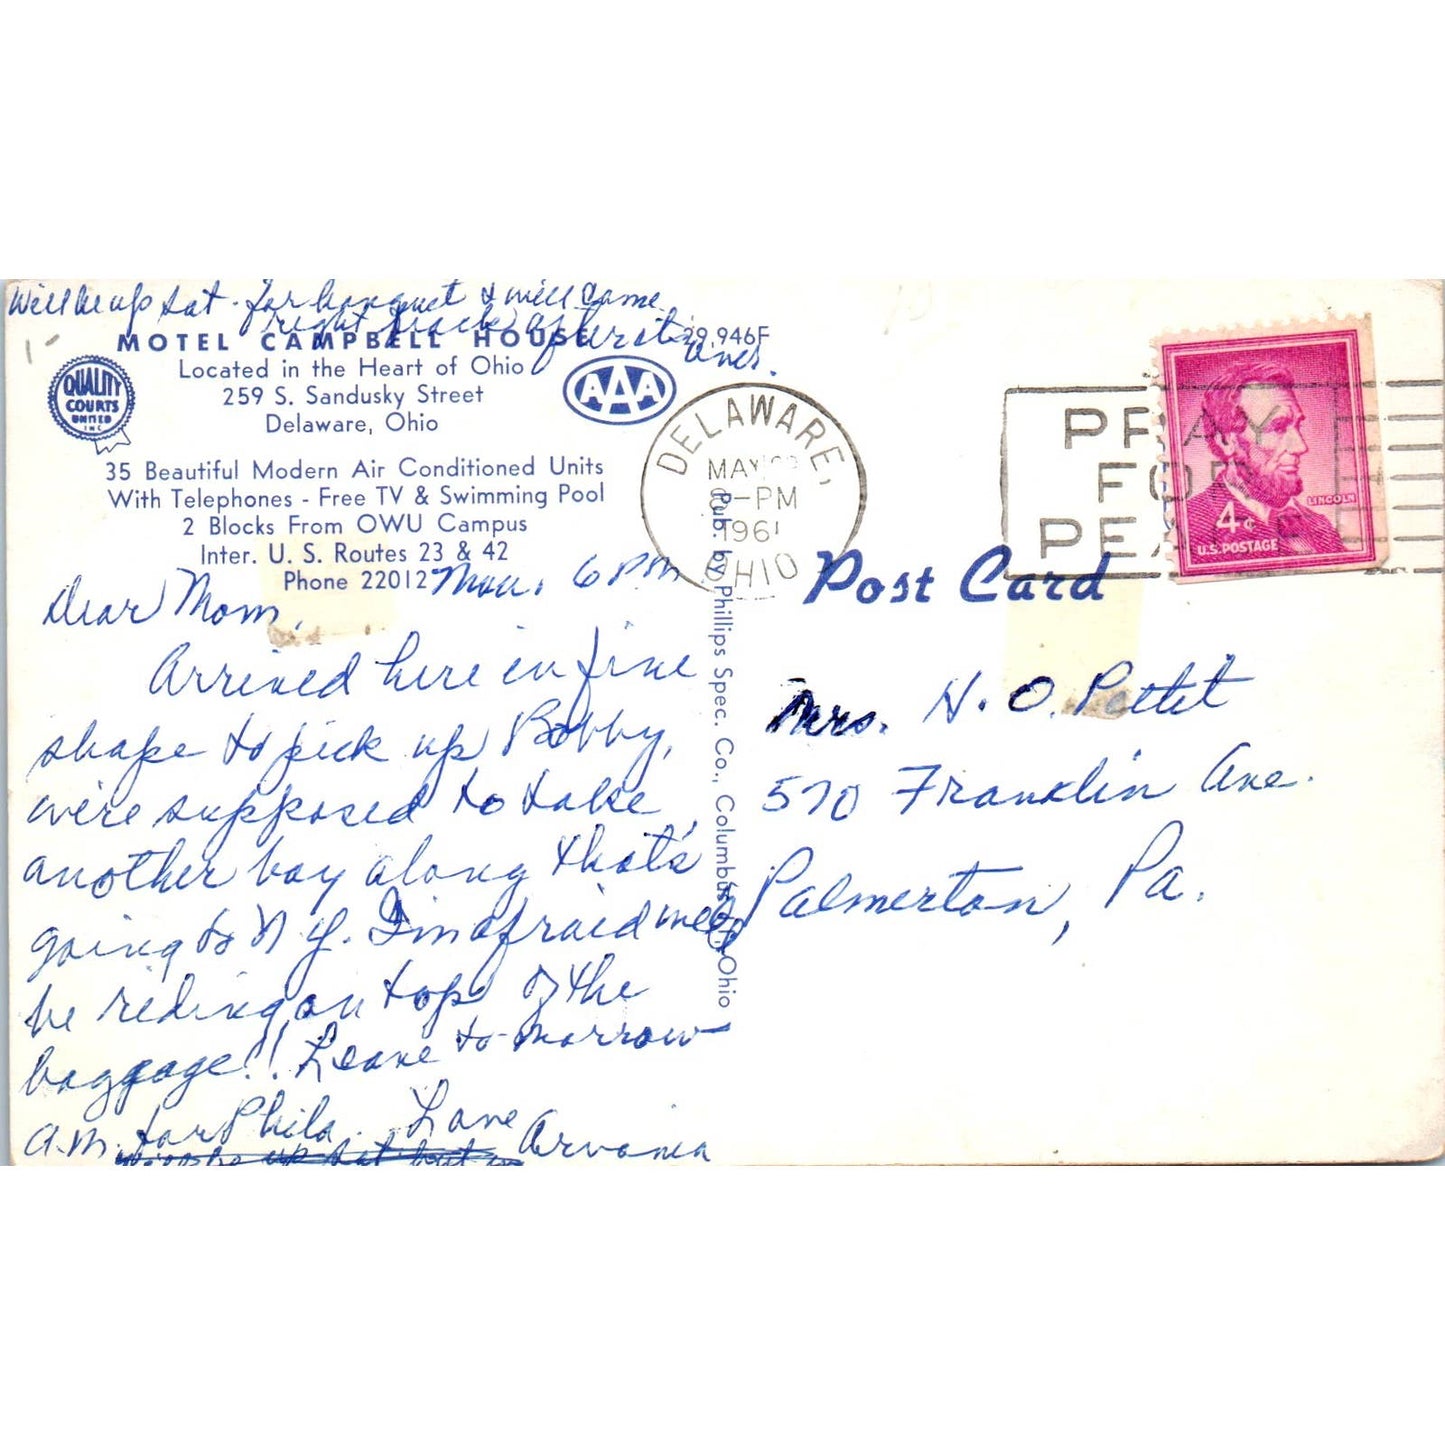 Will be up Sat. for banquet & will come
right back after it
over.
MOTEL CAMPBELL HOUSE
29,946F
Located in the Heart of Ohio
259 S. Sandusky Street
Delaware, Ohio
QUALITY
COURTS
UNITED
INC
AAA
35 Beautiful Modern Air Conditioned Units
With Telephones - Free TV & Swimming Pool
2 Blocks From OWU Campus
Inter. U. S. Routes 23 & 42
Phone 22012
Mon. 6 PM
Dear Mom,
Arrived here in fine
shape to pick up Bobby,
we're supposed to take
another boy along that's
going to N Y. I'm afraid we'll
be riding on top of the
baggage!! Leave to-morrow
a.m. for Phila. Love
Arvania
Pub. by Phillips Spec. Co., Columbus, Ohio
DELAWARE,
MAY
PM
1961
OHIO
PRAY
FOR
PEACE
LINCOLN
4¢
U.S. POSTAGE
Post Card
Mrs. H. O. Pettit
570 Franklin Ave.
Palmerton, Pa.